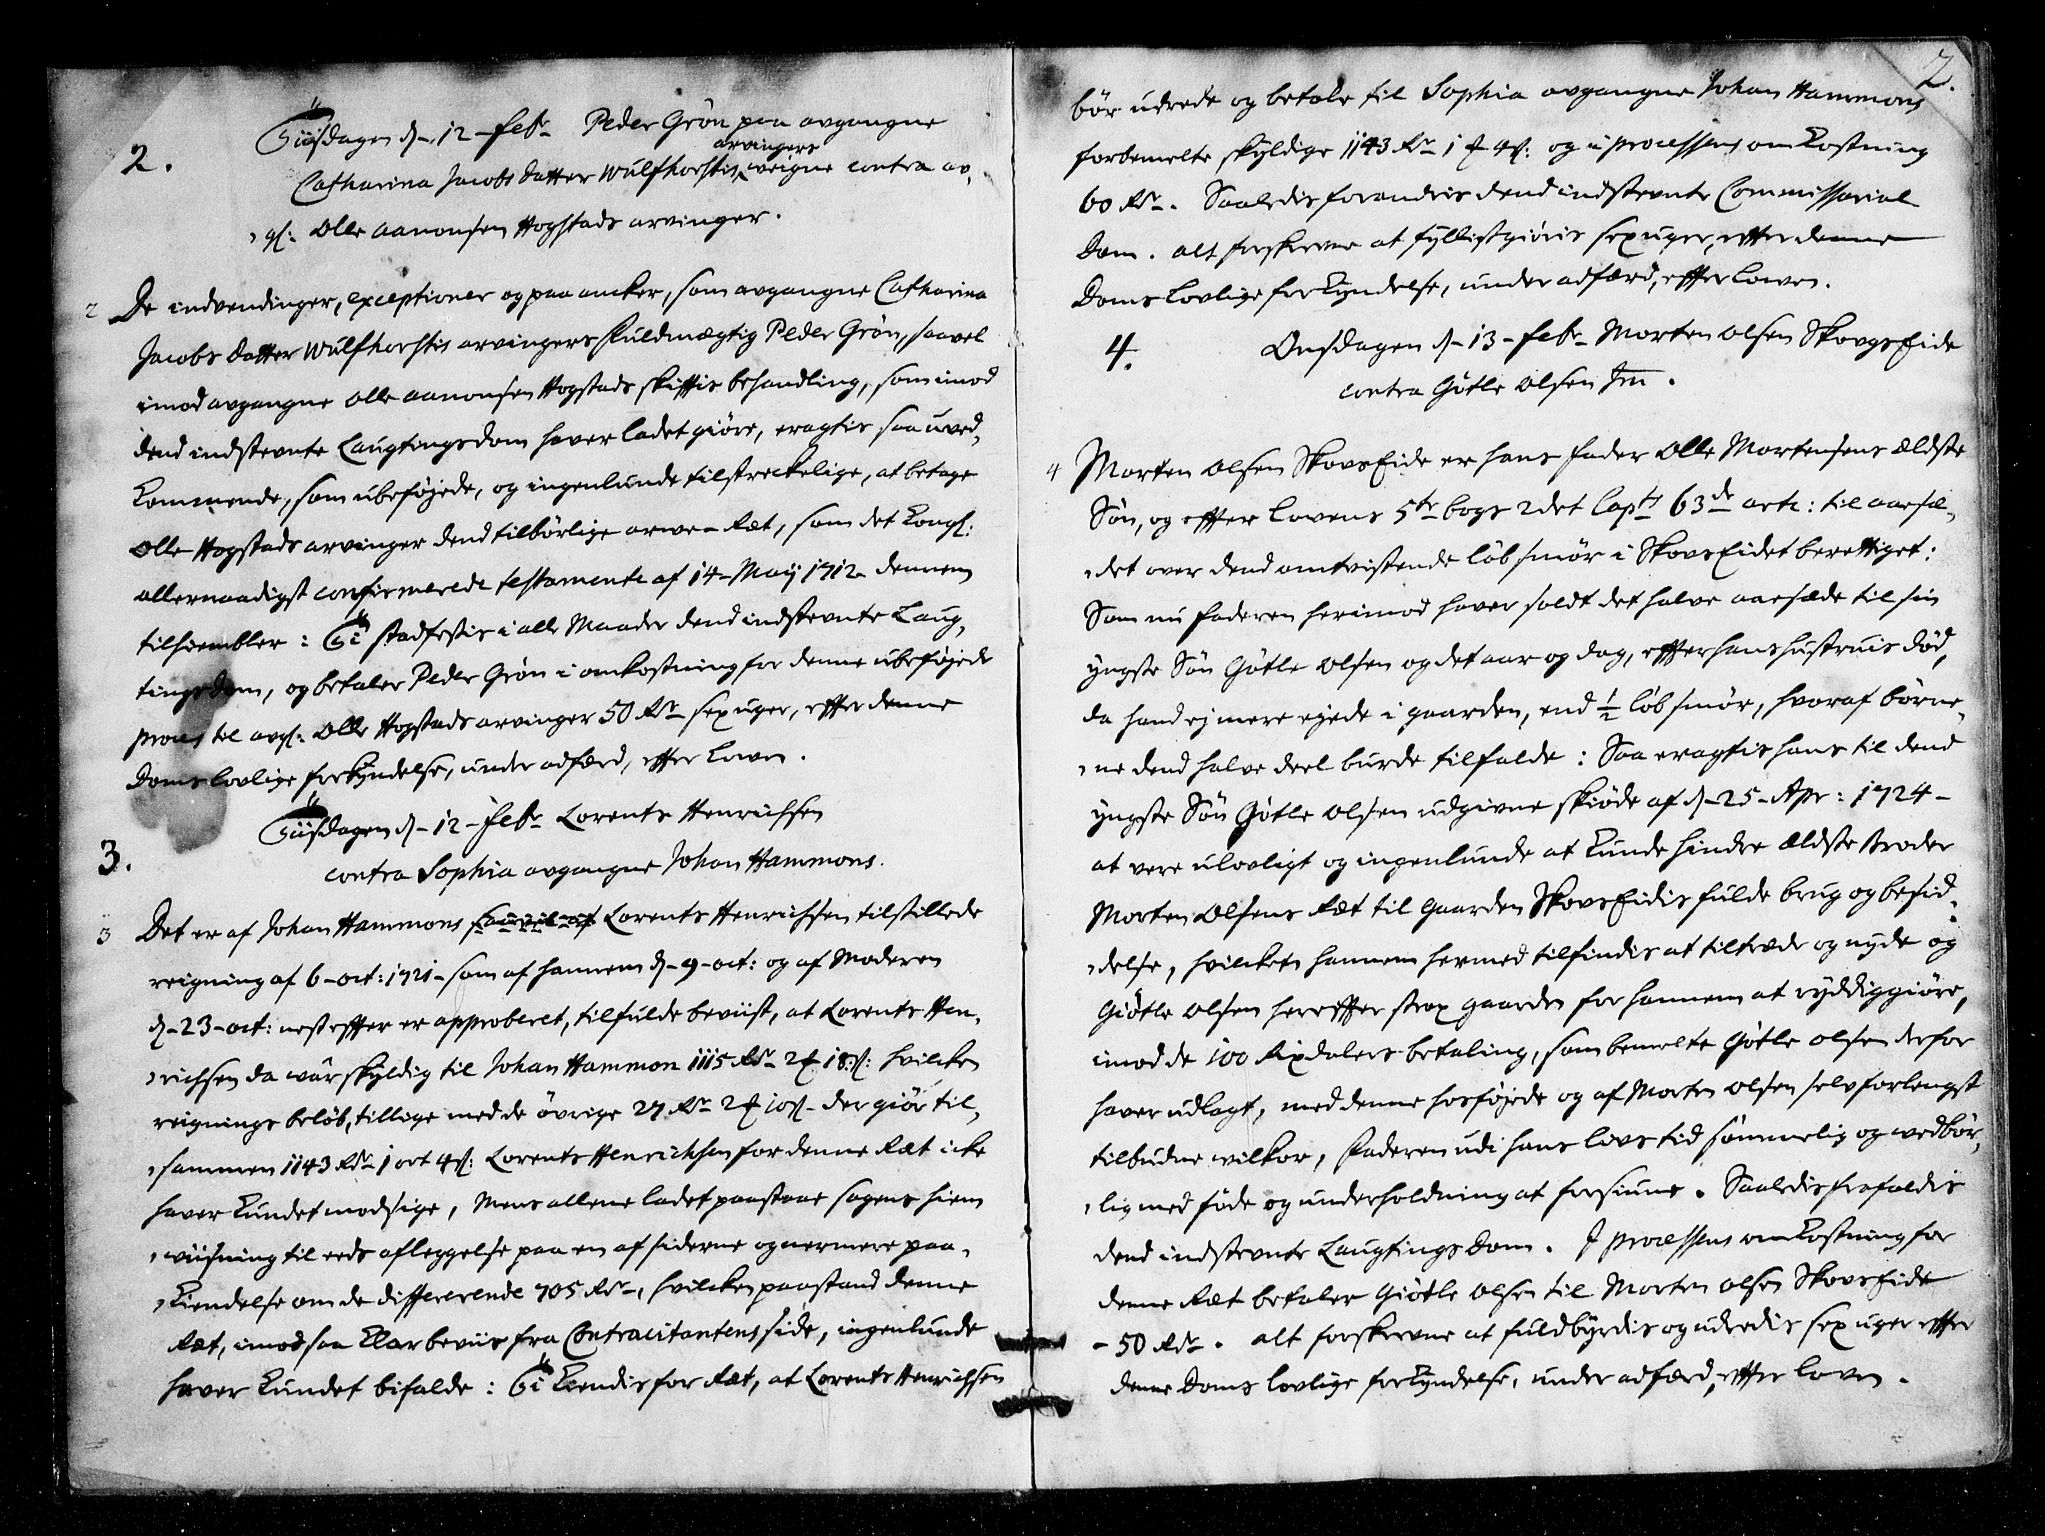 2.
Tiisdagen d. 12 Febr. Peder Grøn paa avgangne
Catharina Jacobs datter Wulfhorstis arvingers veigne contra av-
gl: Olle Aanonsen Hogstads arvinger.
2 De indvendinger, exceptioner og paa ancker, som avgangne Catharina
Jacobs datter Wulfhorstis arvingers Fuldmegtig Peder Grøn, saavel
imod avgangne Olle Aanonsen Hogstads skiftis behandling, som imod
dend indstevnte Laugtings dom haver ladet giøre, eragtis saa uved-
kommende, som ubeføjede, og ingenlunde tilstreckelige, at betage
Olle Hogstads arvinger dend tilbørlige arve-Ræt, som det Kongl:
allernaadigst confirmerede testamente af 14 Maij 1712 dennem
tilhiembler: Ti stadfestis i alle Maader dend indstevnte Laug-
tings dom, og betaler Peder Grøn i omkostning for denne ubeføjede
Proces til avgl: Olle Hogstads arvinger 50 Rdr sex uger, effter denne
Doms lovlige forkyndelse, under adferd, effter Loven.
3.
Tiisdagen d. 12 Febr. Lorents Henrichsen
contra Sophia avgangne Johan Hammons.
3 Det er af Johan Hammons Lorents Henrichsen tilstillede
reigning af 6 oct: 1721 som af hannem d. 9 oct: og af Moderen
d. 23 oct: nest effter er approberet, tilfulde beviist, at Lorents Hen-
richsen da vār skyldig til Johan Hammon 1115 Rdr 2 ₰ 18 s: hvilcken
reignings beløb, tillige med de øvrige 27 Rdr 2 ₰ 10 s der giør til-
sammen 1143 Rdr 1 ort 4 s: Lorents Henrichsen for denne Ræt icke
haver kundet modsige, Mens allene ladet paastaae sagens hiem
viisning til eeds afleggelse paa en af siderne og nermere paa-
kiendelse om de differerende 705 Rdr, hvilcken paastand denne
Ræt, imod saa klar beviis fra Contracitantens side, ingenlunde
haver kundet bifalde: Ti kiendis for Ræt, at Lorents Henrichsen
2.
bør udrede og betale til Sophia avgangne Johan Hammons
forbemelte skyldige 1143 Rdr 1 ₰ 4 s: og i Processens omkostning
60 Rdr. Saaledis forandris dend indstevnte Commissarial
Dom. alt forskrevne at fyllistgiøris sex uger, effter denne
Doms lovlige forkyndelse, under adfærd, effter Loven.
4.
Onsdagen d. 13 Febr. Morten Olsen Skovgs Eide
contra Gøtle Olsen Jbm.
4 Morten Olsen Skovs Eide er hans fader Olle Mortensens ældste
Søn, og effter Lovens 5te bogs 2det Capts 63de artc: til aasæ-
det over dend omtvistende løb smør i Skovs Eidet berettiget:
Som nu faderen herimod haver soldt det halve aasæde til sin
yngste Søn Gøtle Olsen og det aar og dag, effter hans hustruis død,
da hand ej mere ejede i gaarden, end ½ løb smør, hvoraf børne-
ne dend halve deel burde tilfalde: Saa eragtis hans til dend
yngste Søn Gøtle Olsen udgivne skiøde af d. 25 Apr: 1724
at vere ulovligt og ingenlunde at kunde hindre ældste broder
Morten Olsens Ræt til gaarden Skovs Eidis fulde brug og besid-
delse, hvilcken hannem hermed tilfindis at tiltræde og nyde og
Giøtle Olsen hereffter strax gaarden for hannem at ryddiggiøre,
imod de 100 Rixdalers betaling, som bemelte Gøtle Olsen derfor
haver udlagt, med denne hosføjede og af Morten Olsen selv forlengst
tilbudne vilkor, Faderen udi hans livs tid sømmelig og vedbør-
lig med føde og underholdning at forsiune. Saaledis frafaldis
dend indstevnte Laugtings dom. I Processens omkostning for
denne Ræt betaler Giøtle Olsen til Morten Olsen Skovs Eide
50 Rdr. alt forskrevne at fuldbyrdis og udredis sex uger effter
denne Doms lovlige forkyndelse, under adferd, effter Loven.